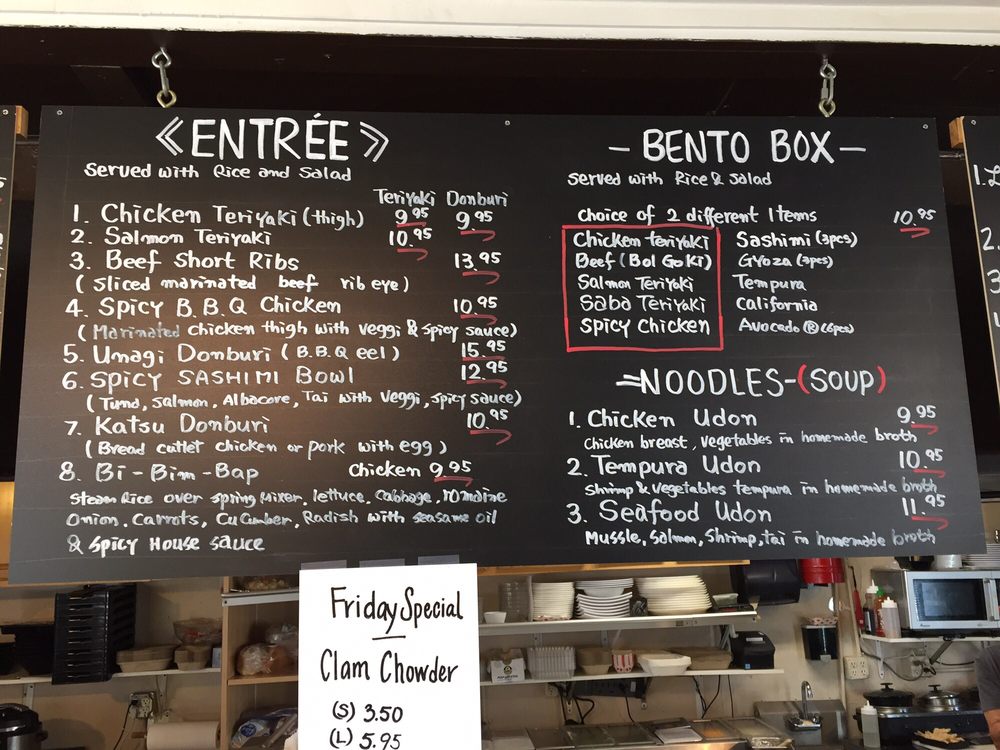 «ENTRÉE»
Served with Rice and Salad
Teriyaki Donburi
1. Chicken Teriyaki (thigh) 9.95 9.95
2. Salmon Teriyaki 10.95
3. Beef Short Ribs 13.95
(Sliced marinated beef rib eye)
4. Spicy B.B.Q Chicken 10.95
(Marinated chicken thigh with veggi & spicy sauce)
5. Unagi Donburi (B.B.Q eel) 15.95
6. Spicy SASHIMI Bowl 12.95
(Tuna, Salmon, Albacore, Tai with veggi, spicy sauce)
7. Katsu Donburi 10.95
(Bread cutlet chicken or pork with egg)
8. Bi-Bim-Bap Chicken 9.95
Steam Rice over spring mixer, lettuce, Cabbage, romaine
Onion, Carrots, Cucumber, Radish with seasame oil
& Spicy House sauce
- BENTO BOX -
Served with Rice & Salad
Choice of 2 different Items 10.95
Chicken teriyaki Sashimi (3pcs)
Beef (Bol Go Ki) Gyoza (3pcs)
Salmon Teriyaki Tempura
Saba Teriyaki California
Spicy Chicken Avocado Ⓡ (6pcs)
=NOODLES-(SOUP)
1. Chicken Udon 9.95
Chicken breast, vegetables in homemade broth
2. Tempura Udon 10.95
Shrimp & vegetables tempura in homemade broth
3. Seafood Udon 11.95
Mussle, Salmon, Shrimp, tai in homemade broth
Friday Special
Clam Chowder
(S) 3.50
(L) 5.95